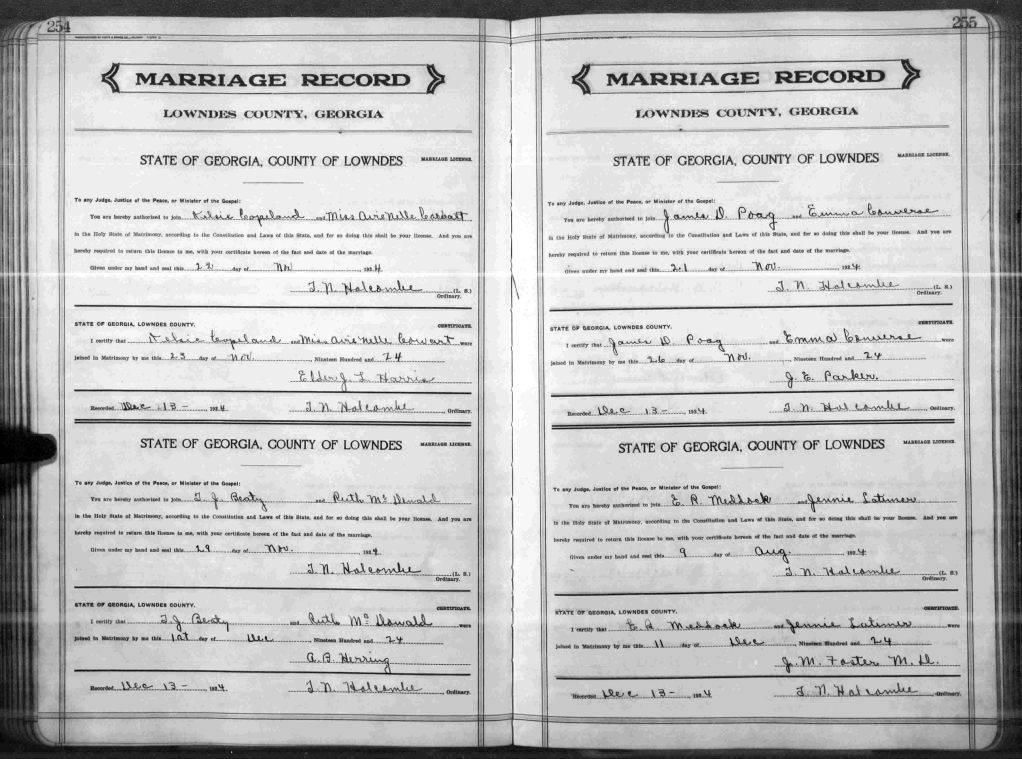 254
MARRIAGE RECORD
LOWNDES COUNTY, GEORGIA
STATE OF GEORGIA, COUNTY OF LOWNDES MARRIAGE LICENSE.
To any Judge, Justice of the Peace, or Minister of the Gospel:
You are hereby authorized to join Kelsie Copeland and Miss Avis Nelle
in the Holy State of Matrimony, according to the Constitution and Laws of this State, and for so doing this shall be your license. And you are
hereby required to return this license to me, with your certificate hereon of the fact and date of the marriage.
Given under my hand and seal this 22 day of Nov 1924
T. N. Holcombe (L. S.)
Ordinary.
STATE OF GEORGIA, LOWNDES COUNTY. CERTIFICATE.
I certify that Kelsie Copeland and Miss Avis Nelle Cowart were
joined in Matrimony by me this 23 day of Nov, Nineteen Hundred and 24
Elder J. L. Harris
Recorded Dec 13- 1924 T. N. Holcombe Ordinary.
STATE OF GEORGIA, COUNTY OF LOWNDES MARRIAGE LICENSE.
To any Judge, Justice of the Peace, or Minister of the Gospel:
You are hereby authorized to join T. J. Beaty and Ruth McDonald
in the Holy State of Matrimony, according to the Constitution and Laws of this State, and for so doing this shall be your license. And you are
hereby required to return this license to me, with your certificate hereon of the fact and date of the marriage.
Given under my hand and seal this 29 day of Nov. 1924
T. N. Holcombe (L. S.)
Ordinary.
STATE OF GEORGIA, LOWNDES COUNTY. CERTIFICATE.
I certify that T. J. Beaty and Ruth McDonald were
joined in Matrimony by me this 1st day of Dec, Nineteen Hundred and 24
A. B. Herring
Recorded Dec 13- 1924 T. N. Holcombe Ordinary.
255
MARRIAGE RECORD
LOWNDES COUNTY, GEORGIA
STATE OF GEORGIA, COUNTY OF LOWNDES MARRIAGE LICENSE.
To any Judge, Justice of the Peace, or Minister of the Gospel:
You are hereby authorized to join James D. Poag and Emma Converse
in the Holy State of Matrimony, according to the Constitution and Laws of this State, and for so doing this shall be your license. And you are
hereby required to return this license to me, with your certificate hereon of the fact and date of the marriage.
Given under my hand and seal this 21 day of Nov. 1924
T. N. Holcombe (L. S.)
Ordinary.
STATE OF GEORGIA, LOWNDES COUNTY. CERTIFICATE.
I certify that James D. Poag and Emma Converse were
joined in Matrimony by me this 26 day of Nov., Nineteen Hundred and 24
J. E. Parker.
Recorded Dec 13- 1924 T. N. Holcombe Ordinary.
STATE OF GEORGIA, COUNTY OF LOWNDES MARRIAGE LICENSE.
To any Judge, Justice of the Peace, or Minister of the Gospel:
You are hereby authorized to join E. R. Meddock and Jennie Latimer
in the Holy State of Matrimony, according to the Constitution and Laws of this State, and for so doing this shall be your license. And you are
hereby required to return this license to me, with your certificate hereon of the fact and date of the marriage.
Given under my hand and seal this 9 day of Aug. 1924
T. N. Holcombe (L. S.)
Ordinary.
STATE OF GEORGIA, LOWNDES COUNTY. CERTIFICATE.
I certify that E. R. Meddock and Jennie Latimer were
joined in Matrimony by me this 11 day of Dec, Nineteen Hundred and 24
J. M. Foster M. D.
Recorded Dec 13- 1924 T. N. Holcombe Ordinary.